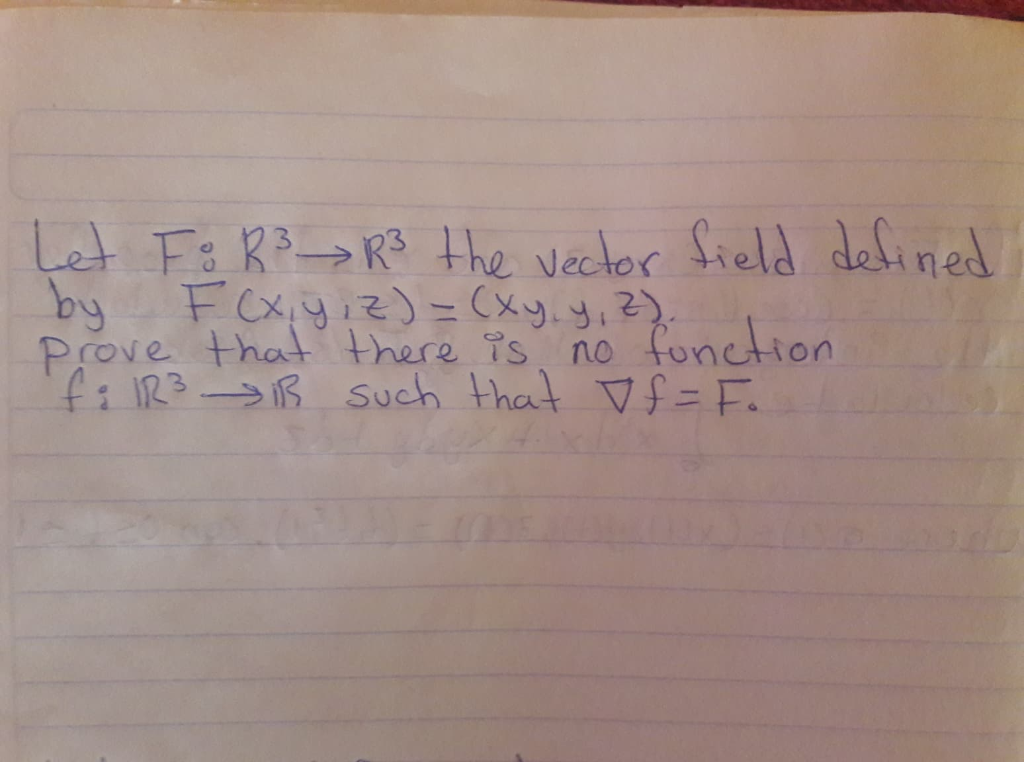 Let F: R³→R³ the vector field defined
by F(x,y,z) = (xy, y, z).
prove that there is no function
f: ℝ³→ℝ such that ∇f = F.